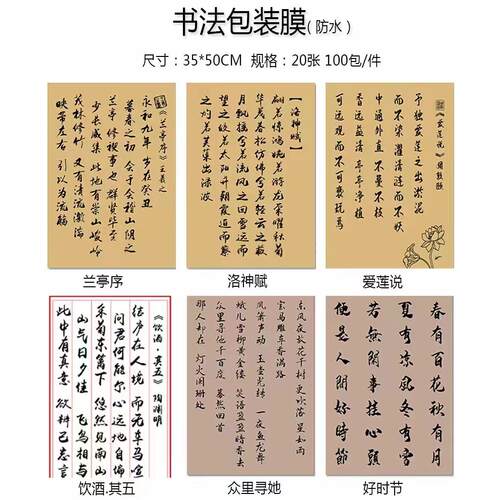 书法包装膜(防水)
尺寸：35*50CM 规格：20张 100包/件
《兰亭序》王羲之
永和九年 岁在癸丑
暮春之初 会于会稽山阴之
兰亭 修禊事也 群贤毕至
少长咸集 此地有崇山峻岭
茂林修竹 又有清流激湍
映带左右 引以为流觞
兰亭序
【洛神赋】
翩若惊鸿婉若游龙荣曜秋菊
华茂春松仿佛兮若轻云之蔽
月飘飖兮若流风之回雪远而
望之皎若太阳升朝霞迫而察
之灼若芙蕖出渌波
洛神赋
《爱莲说》周敦颐
予独爱莲之出淤泥
而不染濯清涟而不妖
中通外直不蔓不枝
香远益清亭亭净植
可远观而不可亵玩焉
爱莲说
《饮酒·其五》陶渊明
结庐在人境 而无车马喧
问君何能尔 心远地自偏
采菊东篱下 悠然见南山
山气日夕佳 飞鸟相与
此中有真意 欲辩已忘言
饮酒.其五
东风夜放花千树 更吹落 星如雨
宝马雕车香满路
凤箫声动 玉壶光转 一夜鱼龙舞
蛾儿雪柳黄金缕 笑语盈盈暗香去
众里寻他千百度 蓦然回首
那人却在 灯火阑珊处
众里寻她
春有百花秋有月
夏有凉风冬有雪
若无闲事挂心头
便是人间好时节
好时节